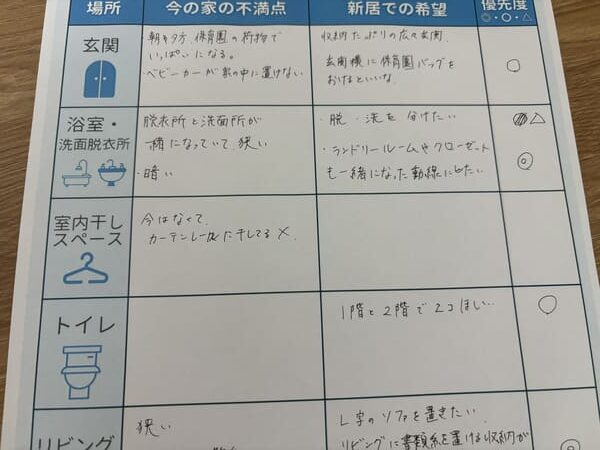 場所 今の家の不満点 新居での希望 優先度
◎・○・△
玄関
朝も夕方、保育園の荷物で
いっぱいになる。
・ベビーカーが家の中に置けない
収納たっぷりの広々玄関
玄関横に保育園バッグを
おけるといいな。
○
浴室・
洗面脱衣所
脱衣所と洗面所が
一緒になっていて狭い
・暗い
・脱・洗を分けたい
△
・ランドリールームやクローゼット
も一緒になった動線にしたい
◎
室内干し
スペース
今はなくて、
カーテンレールに干してる×
トイレ
1階と2階で2コほしい…
○
リビング
狭い
L字のソファを置きたい
リビングに書類系を置ける収納が